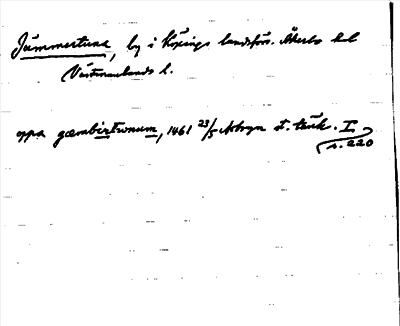 Jämmertuna, by i Köpings landsförs. Åkerbo hd
Västmanlands l.
oppa gæmbirtwnum, 1461 23/5 Arboga st. tänk. I
s. 220